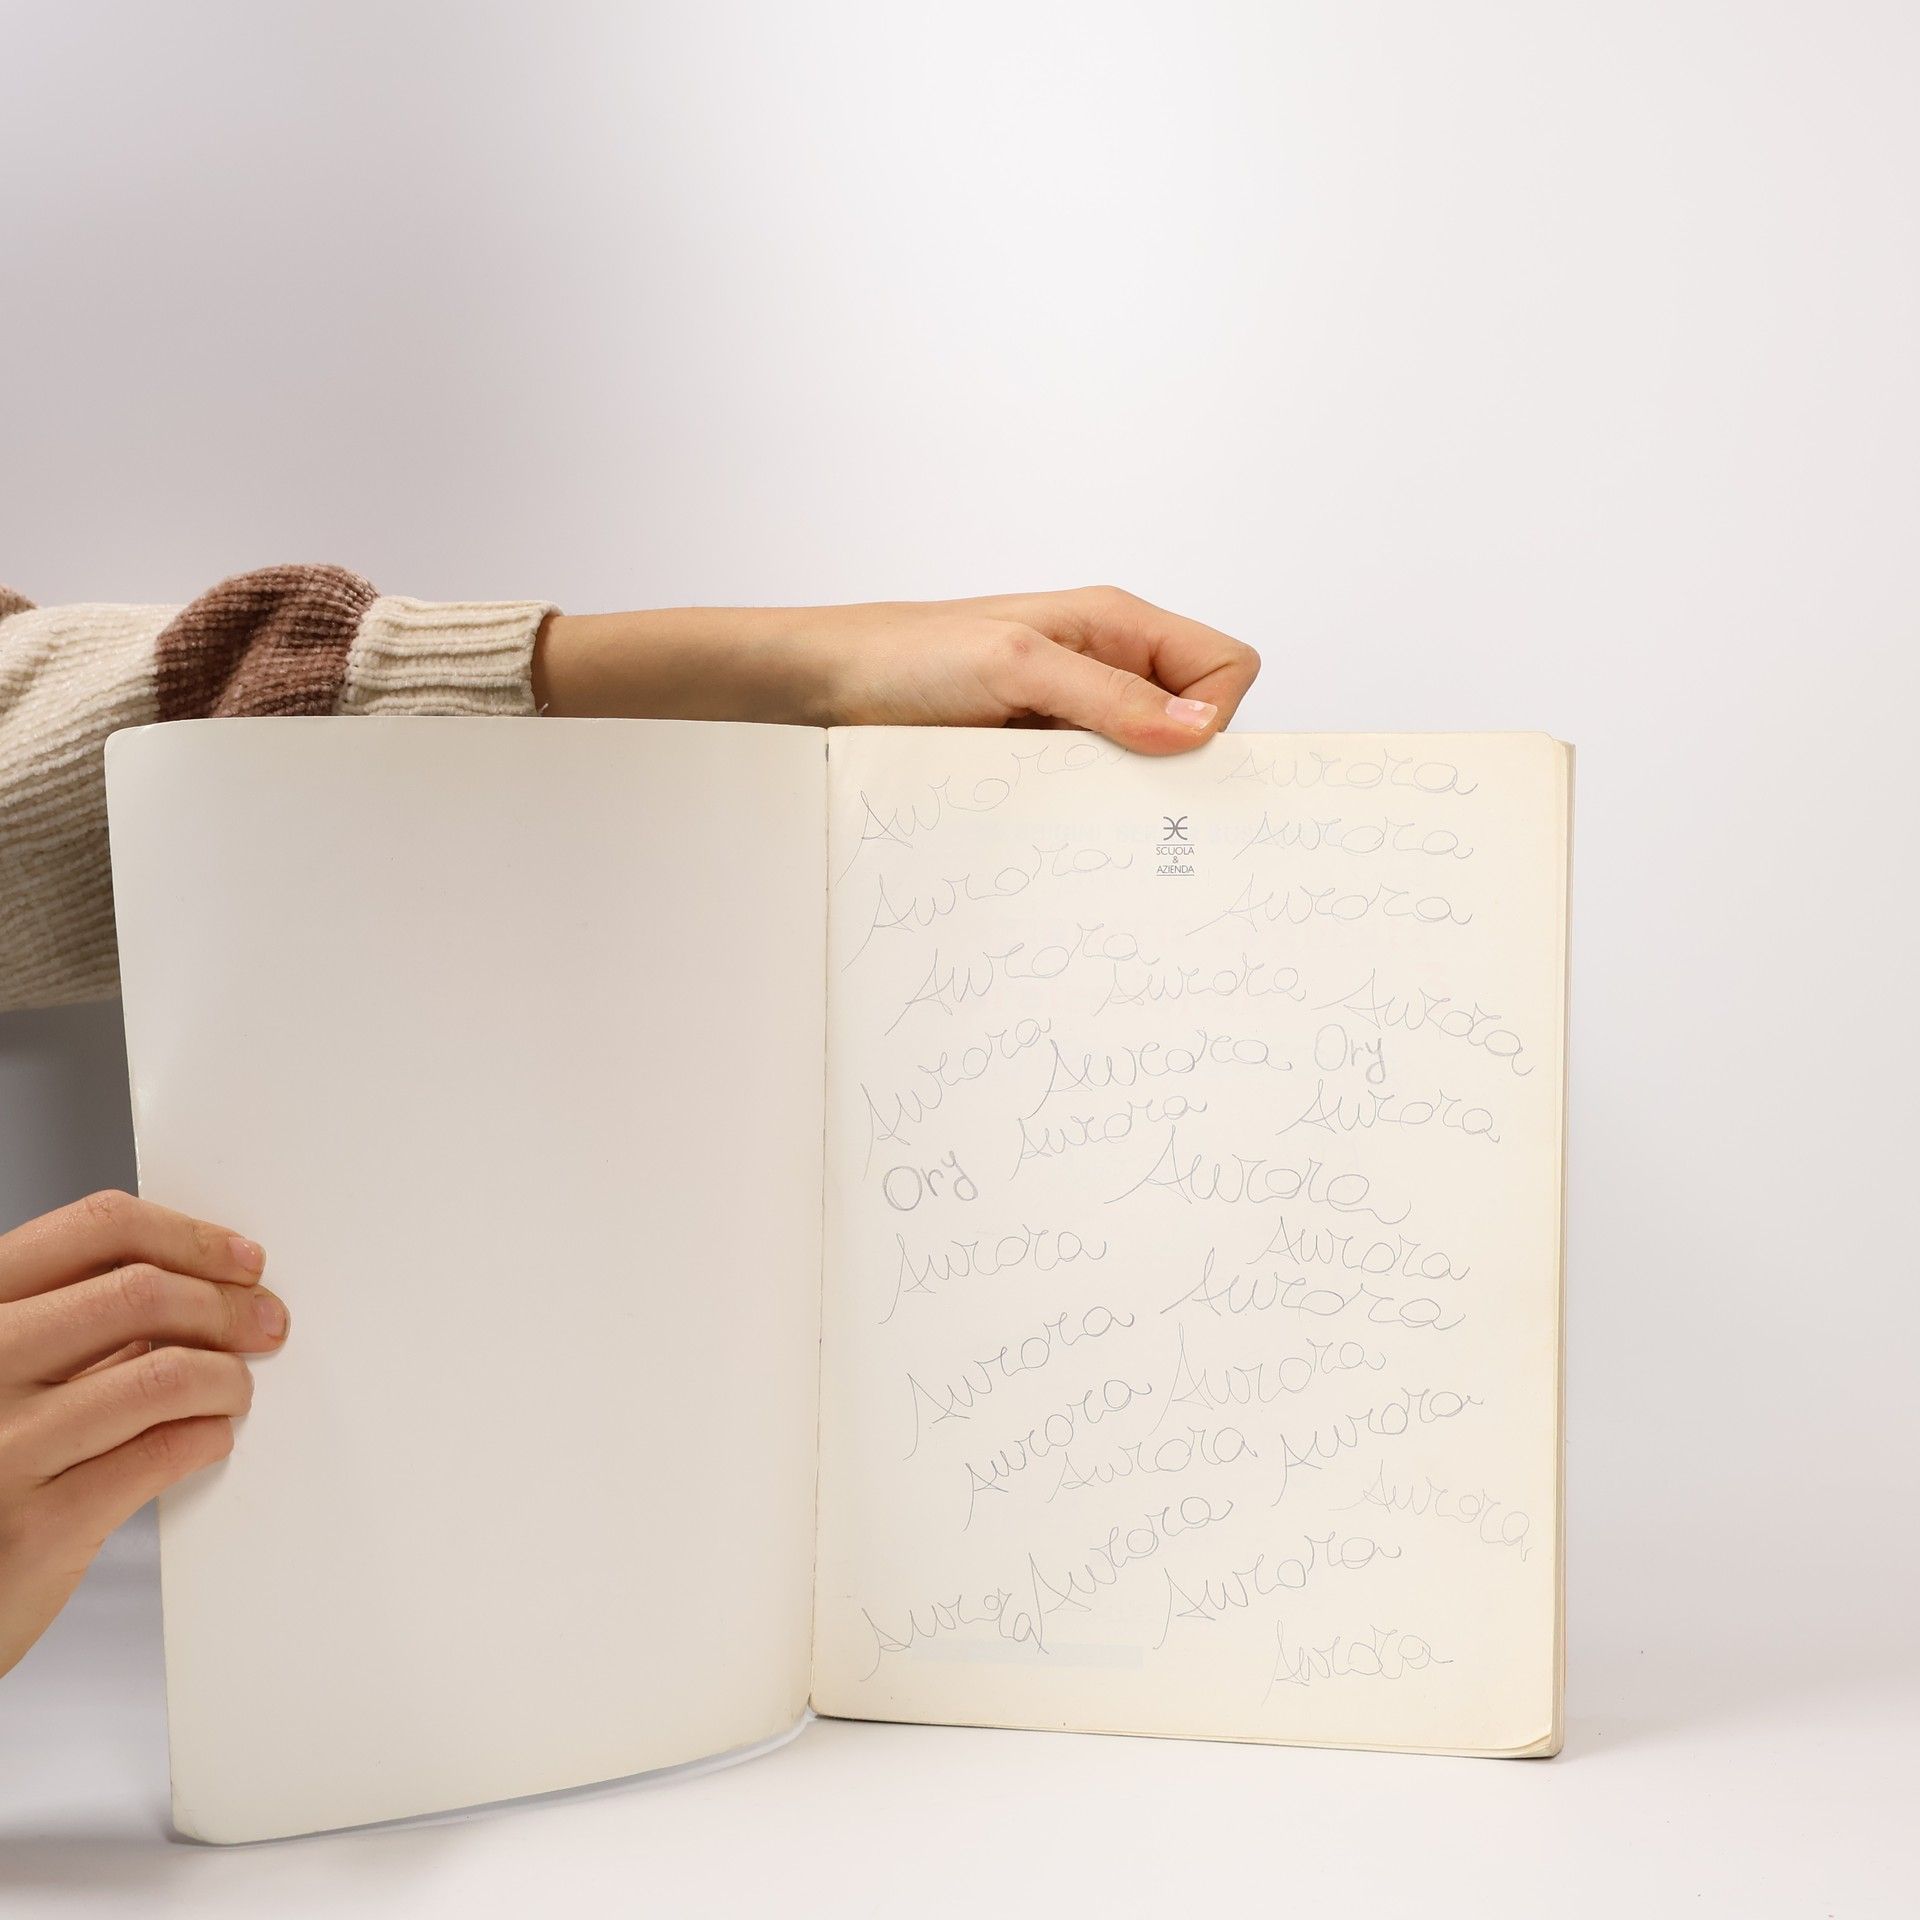 Aurora Aurora
Aurora
SCUOLA
&
AZIENDA
Aurora Aurora
Aurora Aurora Aurora
Aurora Aurora Ory
Aurora Aurora
Ory Aurora
Aurora Aurora
Aurora
Aurora Aurora
Aurora Aurora Aurora
Aurora
Aurora Aurora
Aurora
Aurora